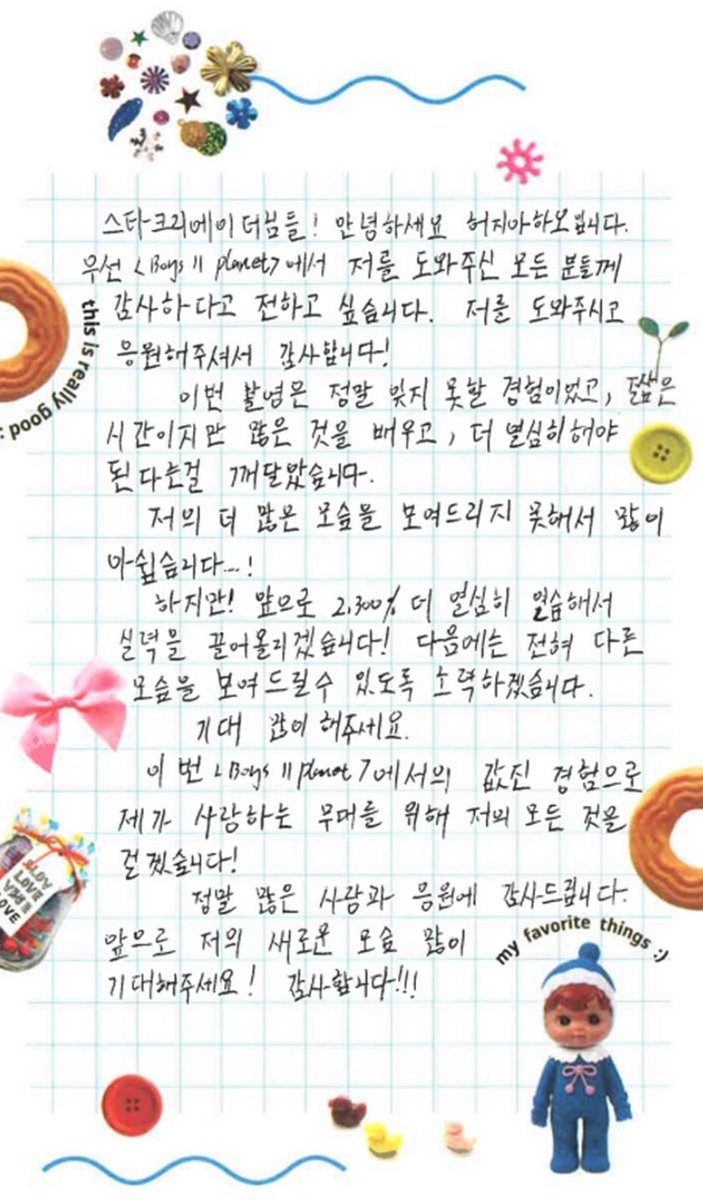 스타크리에이터님들! 안녕하세요 허지아하오입니다.
우선 <Boys II planet>에서 저를 도와주신 모든 분들께
감사하다고 전하고 싶습니다. 저를 도와주시고
응원해주셔서 감사합니다!
this is really good :
이번 촬영은 정말 잊지 못할 경험이었고, 짧은
시간이지만 많은 것을 배우고, 더 열심히해야
된다는걸 깨달았습니다.
저의 더 많은 모습을 보여드리지 못해서 많이
아쉽습니다...!
하지만! 앞으로 2,300% 더 열심히 연습해서
실력을 끌어올리겠습니다! 다음에는 전혀 다른
모습을 보여드릴수 있도록 노력하겠습니다.
기대 많이 해주세요.
이번 <Boys II planet>에서의 값진 경험으로
제가 사랑하는 무대를 위해 저의 모든 것을
걸겠습니다!
LOVE
LOVE
정말 많은 사랑과 응원에 감사드립니다.
앞으로 저의 새로운 모습 많이
기대해주세요! 감사합니다!!!
my favorite things :)